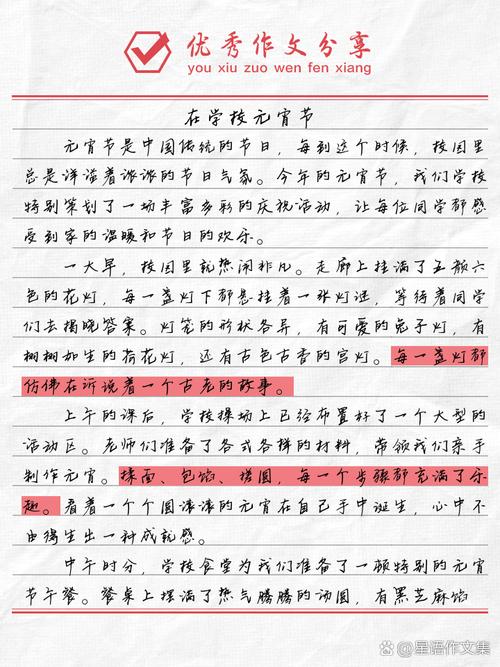 优秀作文分享
you xiu zuo wen fen xiang
在学校元宵节
元宵节是中国传统的节日，每到这个时候，校园里
总是洋溢着浓浓的节日气氛。今年的元宵节，我们学校
特别策划了一场丰富多彩的庆祝活动，让每位同学都感
受到家的温暖和节日的欢乐。
一大早，校园里就热闹非凡。走廊上挂满了五颜六
色的花灯，每一盏灯下都悬挂着一张灯谜，等待着同学
们去揭晓答案。灯笼的形状各异，有可爱的兔子灯，有
栩栩如生的荷花灯，还有古色古香的宫灯。每一盏灯都
仿佛在诉说着一个古老的故事。
上午的课后，学校操场上已经布置好了一个大型的
活动区。老师们准备了各式各样的材料，带领我们亲手
制作元宵。揉面、包馅、搓圆，每一个步骤都充满了乐
趣。看着一个个圆滚滚的元宵在自己手中诞生，心中不
由得生出一种成就感。
中午时分，学校食堂为我们准备了一顿特别的元宵
节午餐。餐桌上摆满了热气腾腾的汤圆，有黑芝麻馅
星语作文集